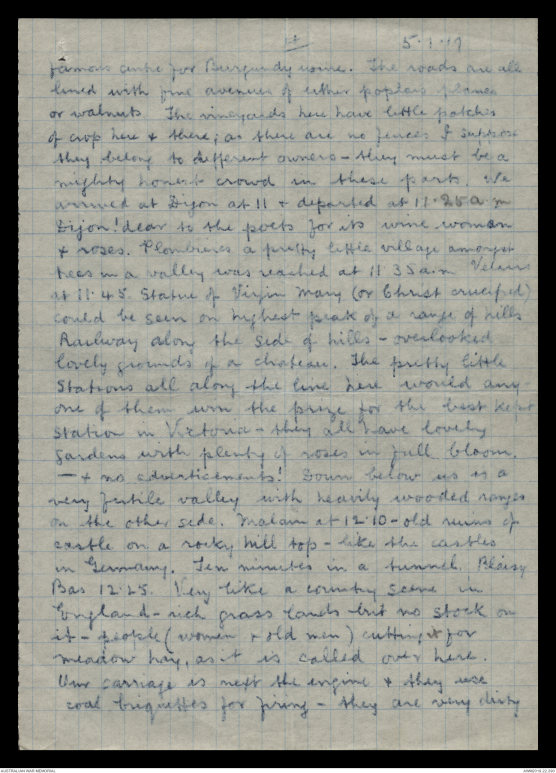 4
5.7.17
famous centre for Burgundy wine. The roads are all
lined with fine avenues of either poplars planes
or walnuts. The vineyards here have little patches
of crop here & there; as there are no fences I suppose
they belong to different owners - they must be a
mighty honest crowd in these parts. We
arrived at Dijon at 11 & departed at 11.25 a.m
Dijon! dear to the poets for its wine women
& roses. Plombieres a pretty little village amongst
trees in a valley was reached at 11 35 a.m Velars
at 11.45. Statue of Virgin Mary (or Christ crucified)
could be seen on highest peak of a range of hills
Railway along the side of hills - overlooked
lovely grounds of a chateau. The pretty little
Stations all along the line here would any-
one of them win the prize for the best kept
Station in Victoria - they all have lovely
gardens with plenty of roses in full bloom.
- & no advertisements! Down below us is a
very fertile valley with heavily wooded ranges
on the other side. Malain at 12.10 - old ruins of
castle on a rocky hill top - like the castles
in Germany. Ten minutes in a tunnel, Blaisy
Bas 12.25. Very like a country scene in
England - rich grass lands but no stock on
it - people (women & old men) cutting it for
meadow hay, as it is called over here.
Our carriage is next the engine & they use
coal briquettes for firing - they are very dirty
AUSTRALIAN WAR MEMORIAL